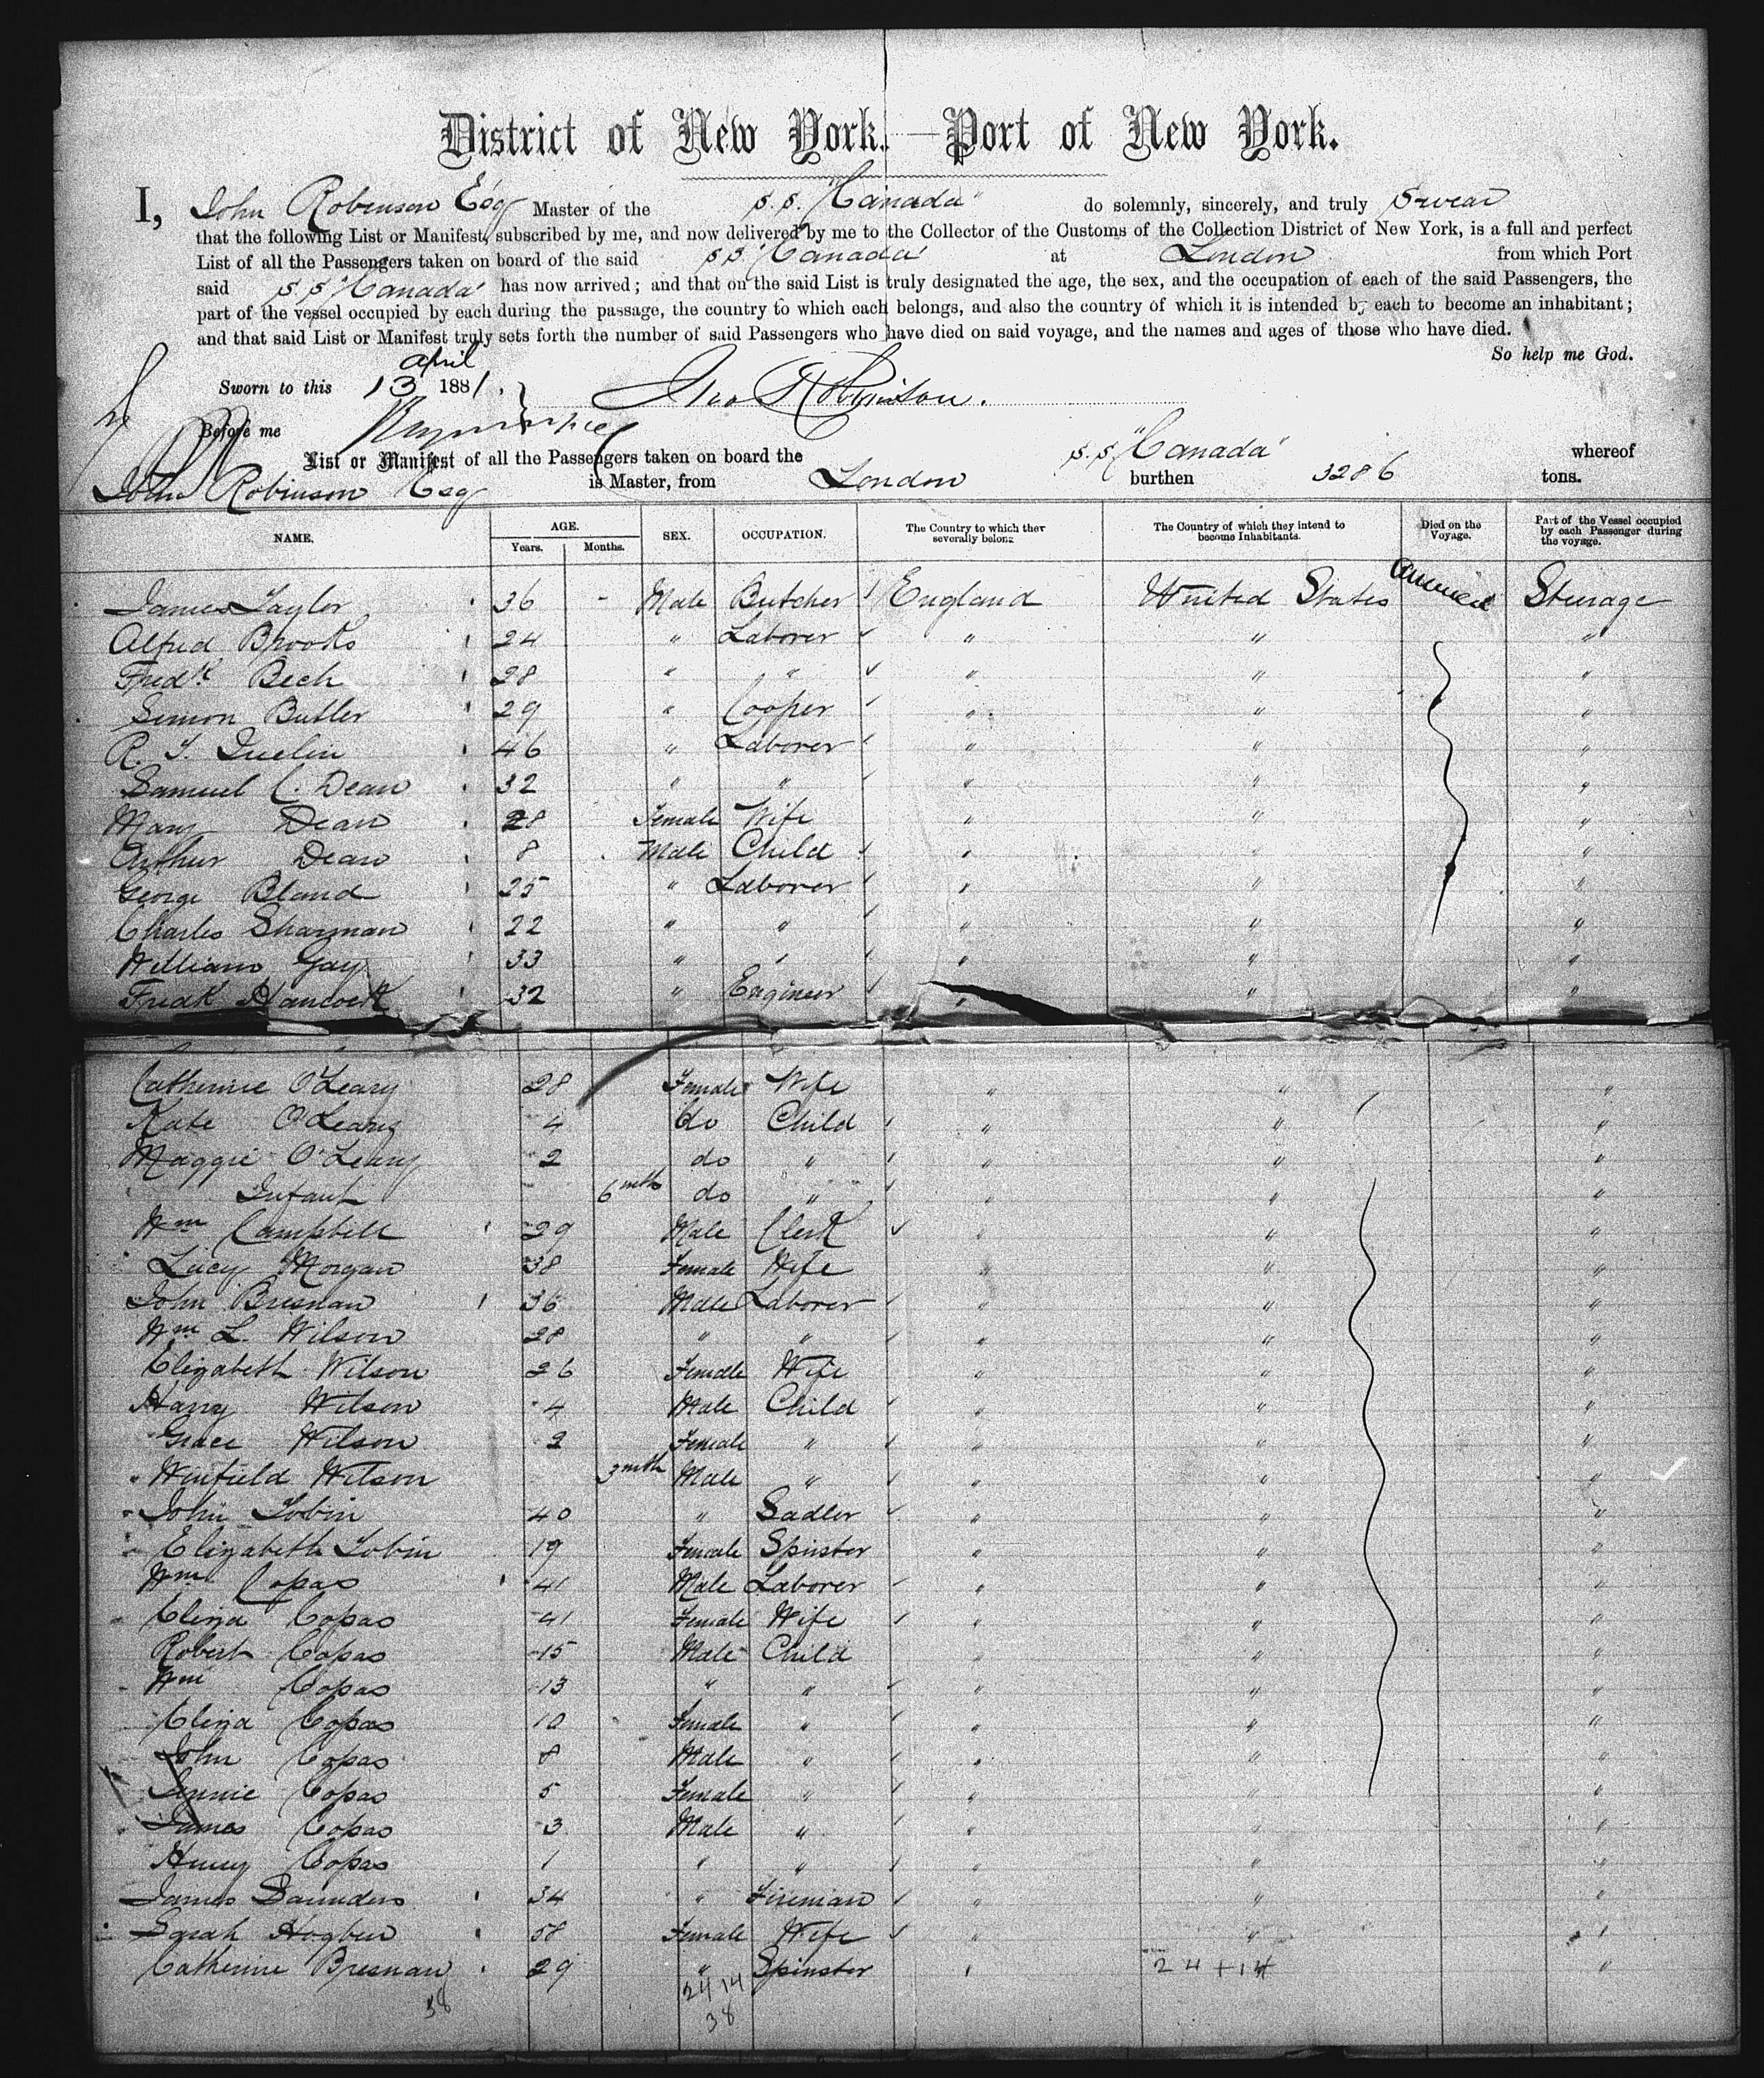 District of New York.—Port of New York.
I, John Robinson Esq Master of the S.S. "Canada" do solemnly, sincerely, and truly swear
that the following List or Manifest, subscribed by me, and now delivered by me to the Collector of the Customs of the Collection District of New York, is a full and perfect
List of all the Passengers taken on board of the said SS "Canada" at London from which Port
said S.S "Canada" has now arrived; and that on the said List is truly designated the age, the sex, and the occupation of each of the said Passengers, the
part of the vessel occupied by each during the passage, the country to which each belongs, and also the country of which it is intended by each to become an inhabitant;
and that said List or Manifest truly sets forth the number of said Passengers who have died on said voyage, and the names and ages of those who have died.
So help me God.
Sworn to this 13 April 1881. Jno Robinson.
Before me
List or Manifest of all the Passengers taken on board the S.S. "Canada" whereof
John Robinson Esq is Master, from London burthen 3286 tons.
NAME. AGE. Years. Months. SEX. OCCUPATION. The Country to which they severally belong. The Country of which they intend to become Inhabitants. Died on the Voyage. Part of the Vessel occupied by each Passenger during the voyage.
James Taylor 36 - Male Butcher England United States America Steerage
Alfred Brooks 24 " Laborer " " "
Fredk Bech 28 " " " " "
Simon Butler 29 " Cooper " " "
R. T. 46 " Laborer " " "
Samuel C. Dean 32 " " " " "
Mary Dean 28 Female Wife " " "
Arthur Dean 8 Male Child " " "
George Bland 25 " Laborer " " "
Charles Sharman 22 " " " " "
William Gay 33 " " " " "
Fredk Hancock 32 " Engineer " " "
Catherine O'Leary 28 Female Wife " " "
Kate O'Leary 4 do Child " " "
Maggie O'Leary 2 do " " " "
Infant 6 mths do " " " "
Wm Campbell 29 Male Clerk " " "
Lucy Morgan 38 Female Wife " " "
John Bresnan 36 Male Laborer " " "
Wm L. Wilson 28 " " " " "
Elizabeth Wilson 26 Female Wife " " "
Harry Wilson 4 Male Child " " "
Grace Wilson 2 Female " " " "
Winfield Wilson 3 mth Male " " " "
John Tobin 40 " Sadler " " "
Elizabeth Tobin 19 Female Spinster " " "
Wm Copas 41 Male Laborer " " "
Eliza Copas 41 Female Wife " " "
Robert Copas 15 Male Child " " "
Wm Copas 13 " " " " "
Eliza Copas 10 Female " " " "
John Copas 8 Male " " " "
Annie Copas 5 Female " " " "
James Copas 3 Male " " " "
Henry Copas 1 " " " " "
James Saunders 34 " Fireman " " "
Sarah Hogben 58 Female Wife " " "
Catherine Bresnan 29 " Spinster " 24+14 "
38 24 14
38